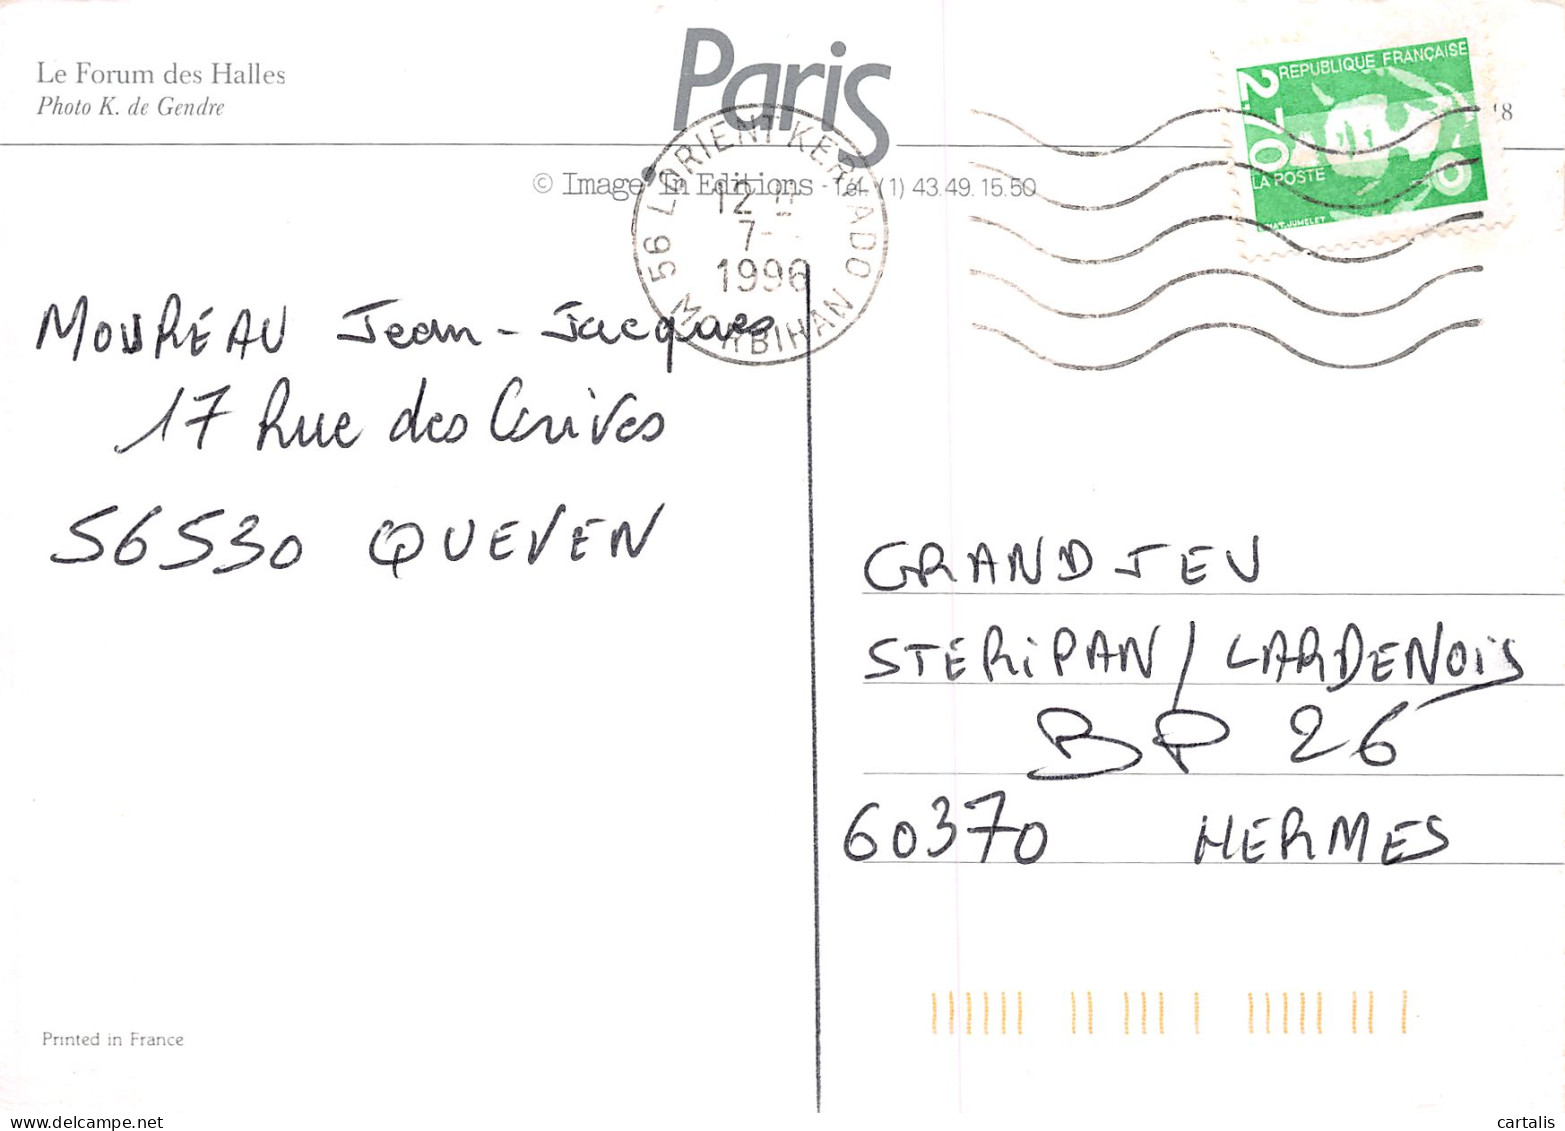 Le Forum des Halles
Photo K. de Gendre
Paris
© Image'In Editions - Tél. (1) 43.49.15.50
56 LORIENT KERYADO
12 H
7-
1996
MORBIHAN
REPUBLIQUE FRANÇAISE
2,70
LA POSTE
MOUREAU Jean-Jacques
17 Rue des
56530 QUEVEN
GRAND JEU
STERiPAN / LARDENOiS
BP 26
60370 HERMES
Printed in France
cartalis